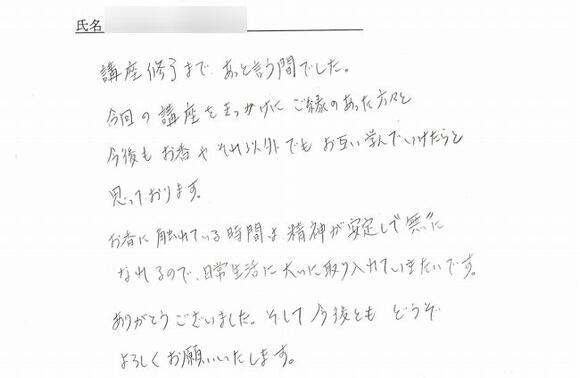 氏名
講座修了まで、あっと言う間でした。
今回の講座をきっかけに ご縁のあった方々と
今後も お香や それ以外でも お互い学んでいけたらと
思っております。
お香に触れている時間は 精神が安定して"無"に
なれるので、日常生活に大いに取り入れていきたいです。
ありがとうございました。そして今後とも どうぞ
よろしくお願いいたします。